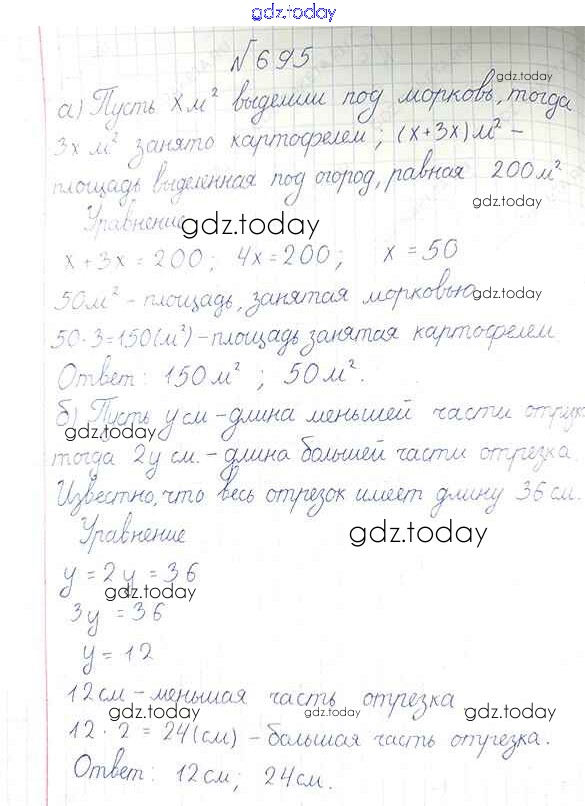 gdz.today
№695
gdz.today
а) Пусть х м² выделили под морковь, тогда
3х м² занято картофелем; (х+3х) м² –
площадь выделенная под огород, равная 200м²
gdz.today
Уравнение
gdz.today
х+3х=200; 4х=200; х=50
50м² – площадь, занятая морковью
gdz.today
50·3=150(м²) – площадь занятая картофелем
Ответ: 150м²; 50м².
б) Пусть у см – длина меньшей части
gdz.today
тогда 2у см. – длина большей части отрезка.
Известно, что весь отрезок имеет длину 36 см.
Уравнение
gdz.today
у = 2у = 36
gdz.today
3у = 36
у = 12
12 см – меньшая часть отрезка
gdz.today gdz.today gdz.today
12 · 2 = 24(см) – большая часть отрезка.
Ответ: 12см; 24см.
gdz.today